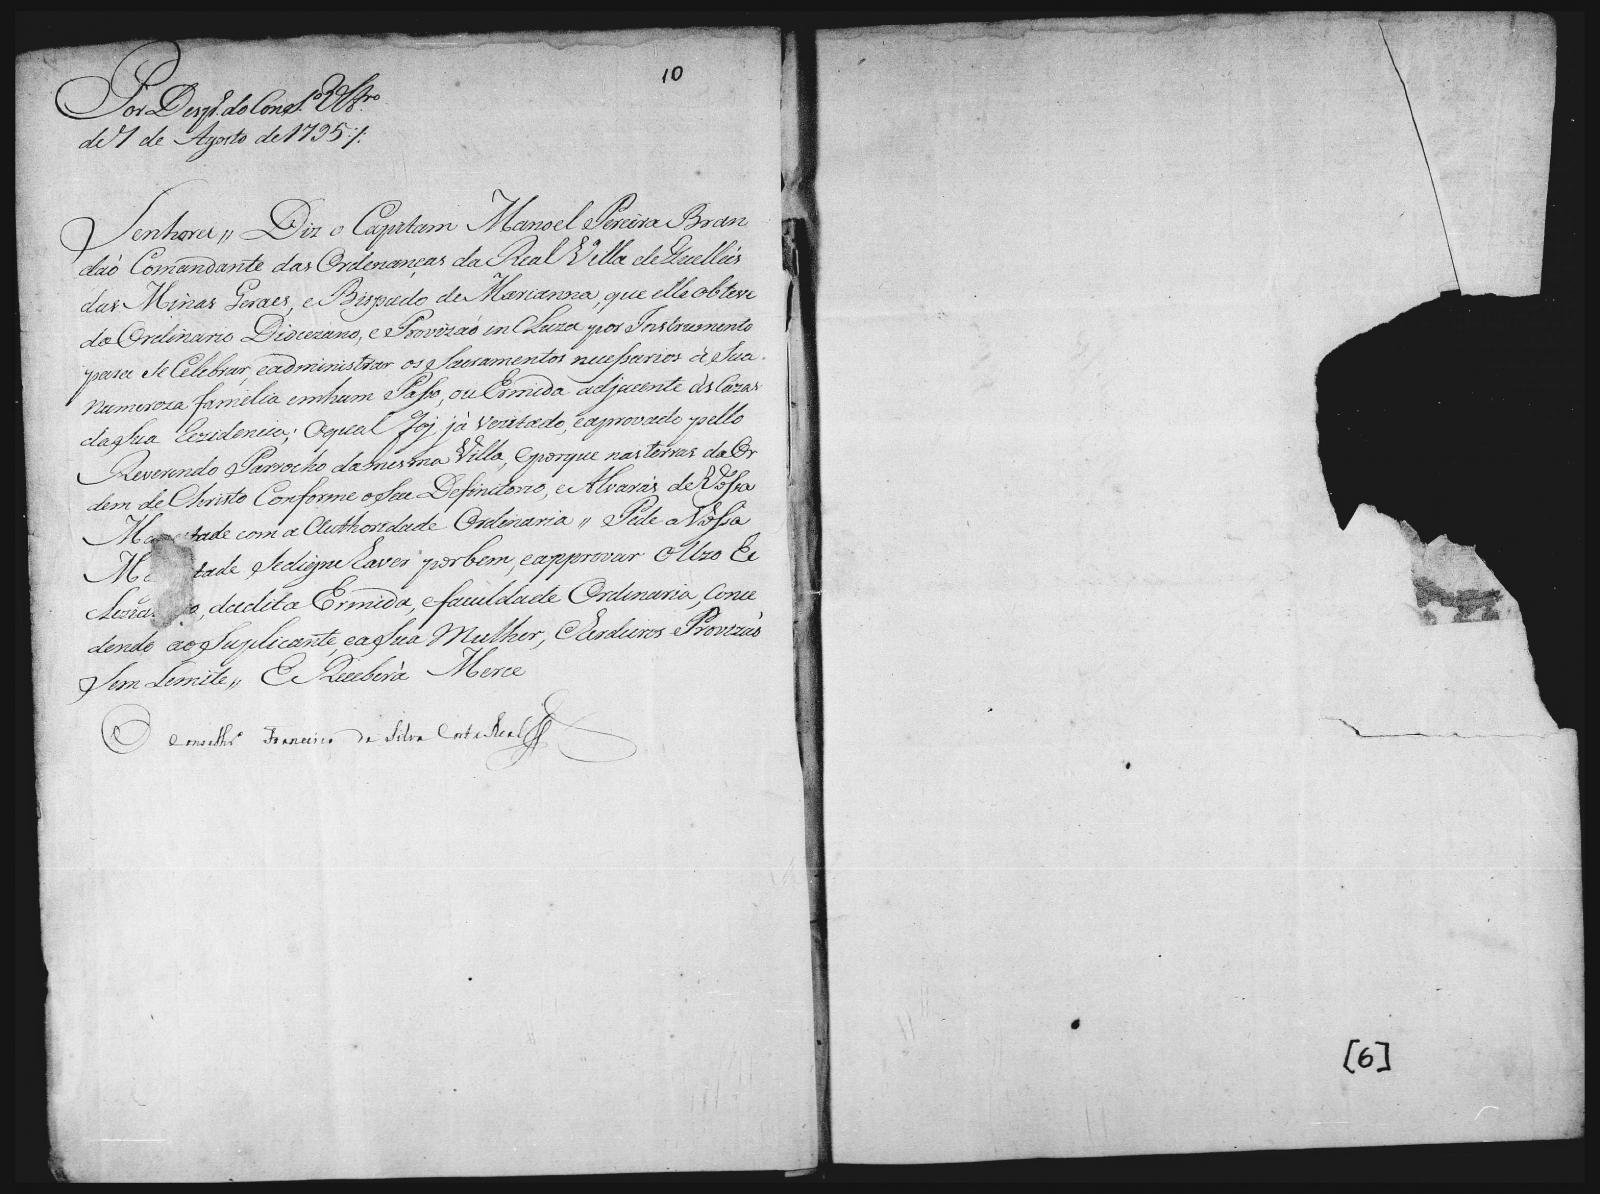 10
Por Desp.º do Cons.º Ultr.º
de 7 de Agosto de 1795 ./.
Senhora,, Diz o Capitam Manoel Pereira Bran
daõ Comandante das Ordenanças da Real Villa de Quellûs
das Minas Geraes, e Bispado de Marianna, que elle obteve
do Ordinario Diocezano, e Provizaõ in por Instrumento
para se Celebrar, e administrar os Sacramentos necessarios á Sua
numeroza familia em hum Passo, ou Ermida adjacente ás Cazas
da Sua Rezidencia; O qual foi já vezitado, e aprovado pello
Reverendo Parrocho da mesma Villa, e porque nas terras da Or
dem de Christo Conforme o Seu Definitorio, e Alvarás de Vossa
Magestade com a Authoridade Ordinaria,, Pede a Vossa
Magestade Se digne haver por bem, e approvar o Uzo
da dita Ermida, e faculdade Ordinaria, Conce
dendo ao Suplicante, e a Sua Mulher, e Erdeiros Provizaõ
Sem Lemite,, E Receberá Merce
O Conselhr.º Francisco da Silva Corte Real
[6]